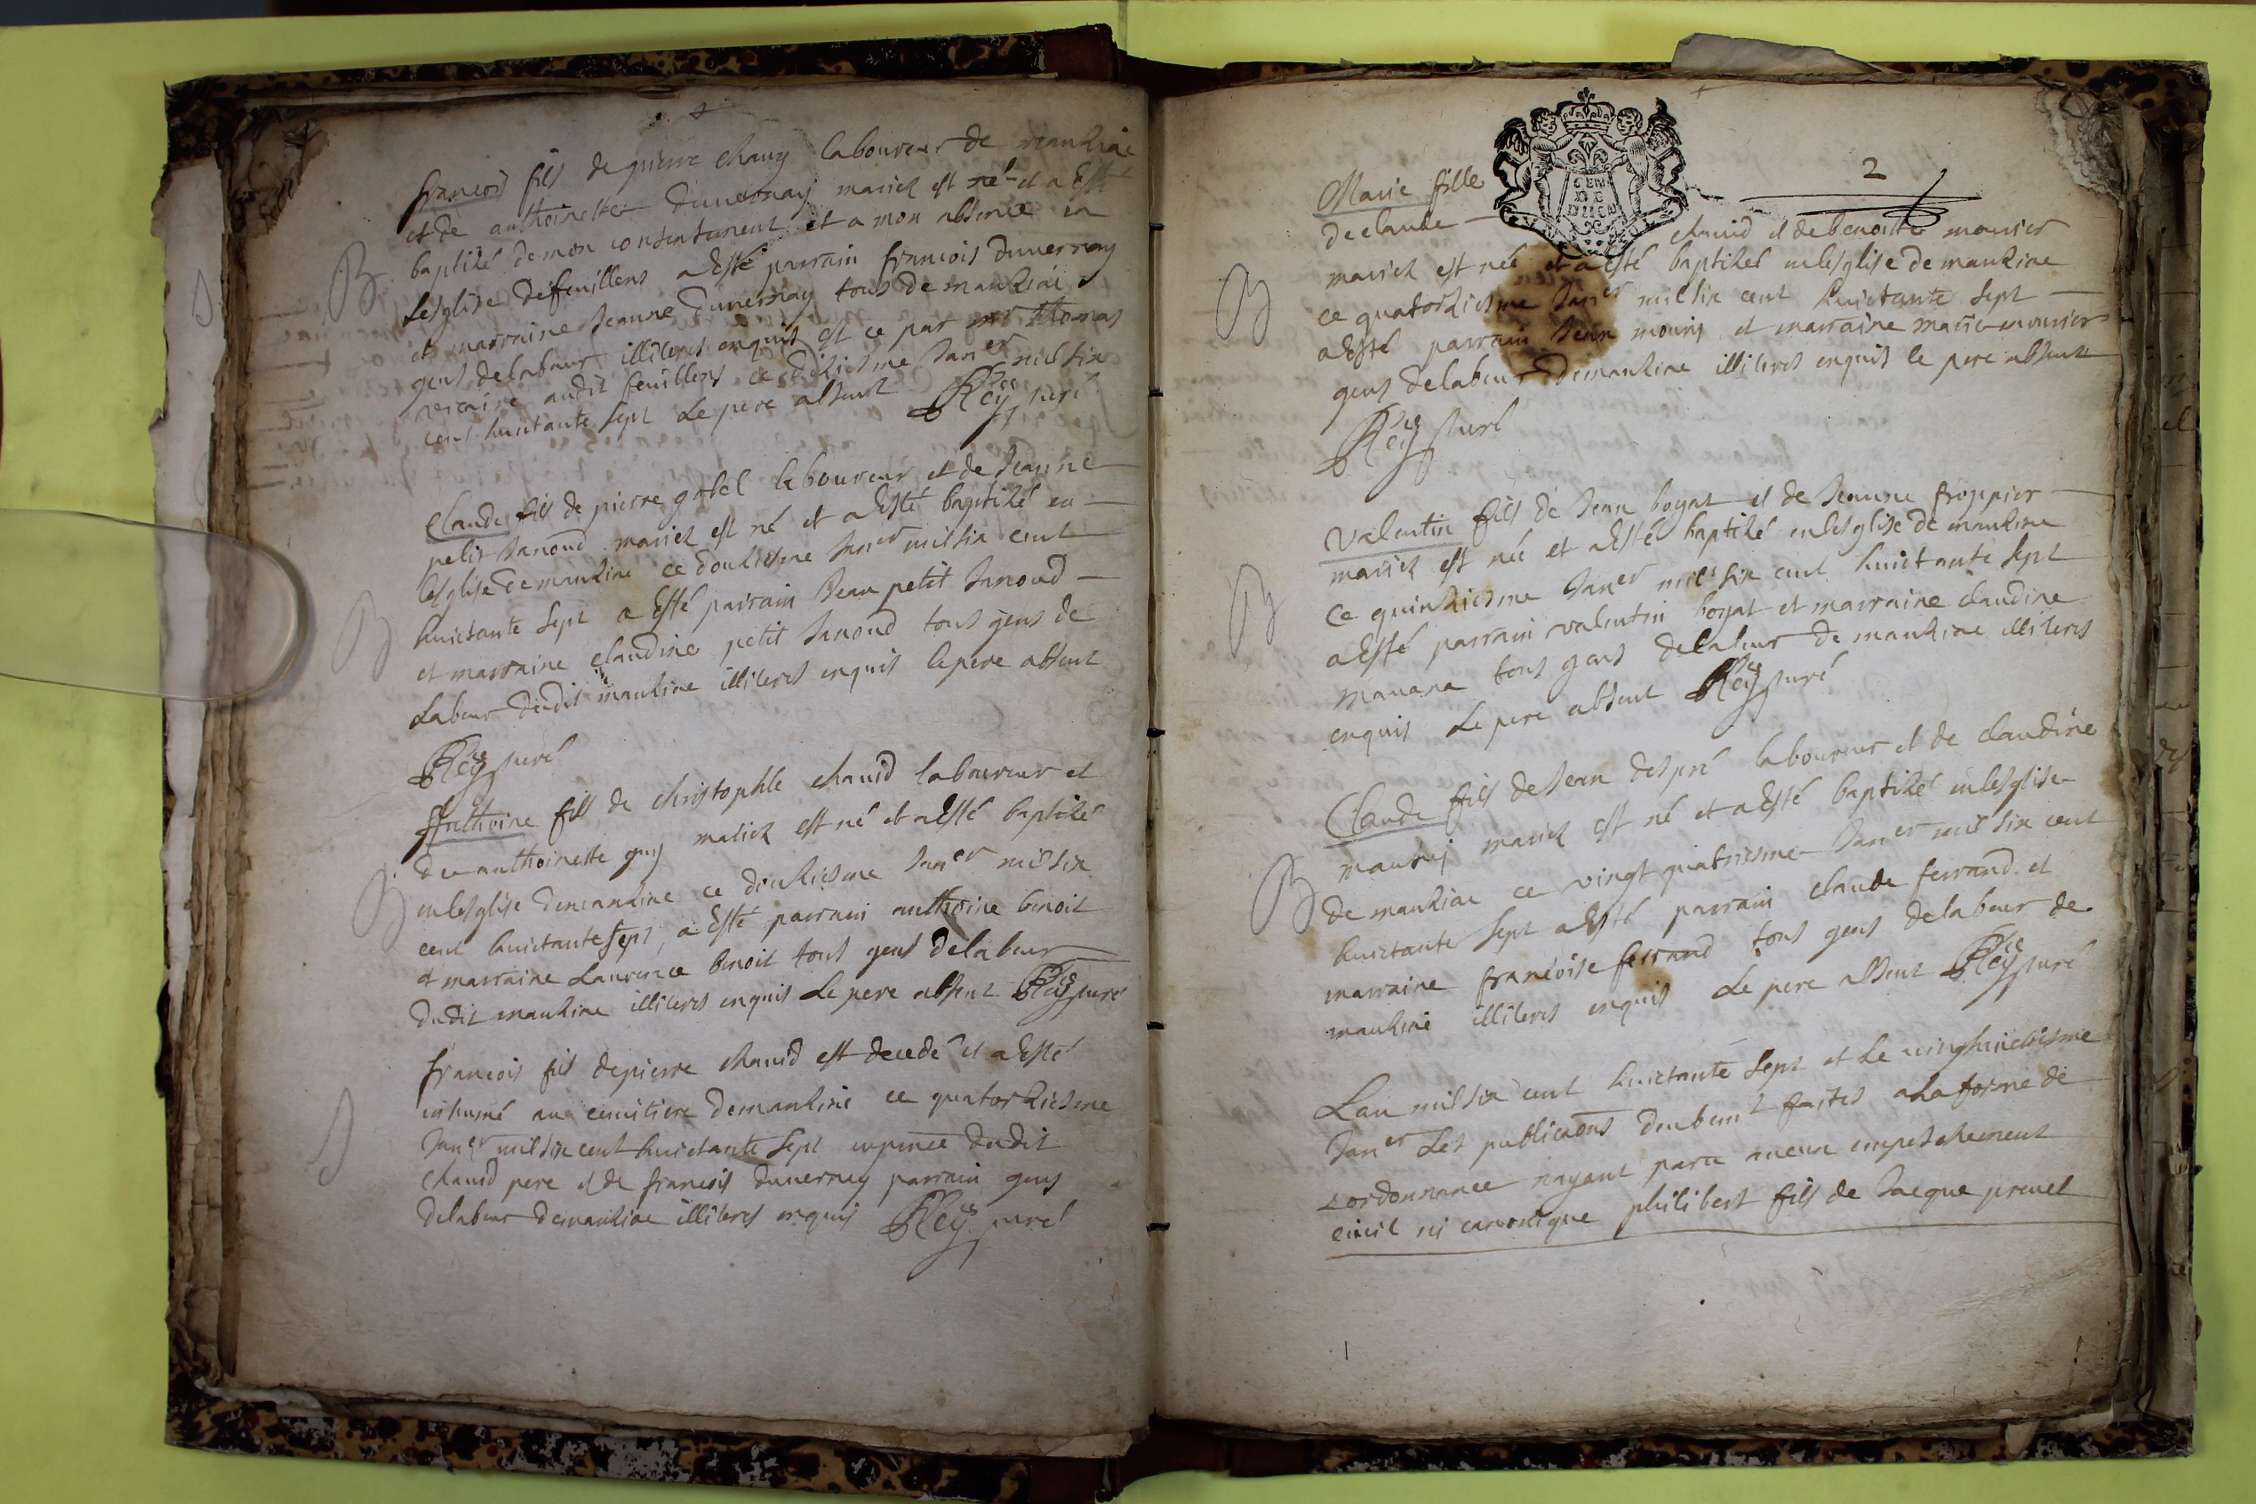 françois fils de pierre chauy laboureur de manziac
et de anthoinette duuernay mariez est né et a Esté
baptizé de mon consentement et a mon absence en
Lesglise de feuillens a Esté parrain françois duuernay
et marraine Jeanne duuernay tous de manziac
gens delabeur illiteres enquis est ce par mre thomas
vicaire audit feuillens ce dixiesme Janer mil six
cent huictante sept Le pere absent Rey curé
Claude fils de pierre gobel laboureur et de Jeanne
petit Janoud mariez est né et a Esté baptizé en
lesglise de manziac ce douziesme Janer mil six cent
huictante sept a Esté parrain Jean petit Janoud
et marraine claudine petit Janoud tous gens de
Labeur dudit manziac illiteres enquis le pere absent
Rey curé
Anthoine fils de christophle chanid laboureur et
de anthoinette guy mariez est né et a Esté baptizé
en lesglise de manziac ce douziesme Janer mil six
cent huictante sept, a Esté parrain anthoine benoit
et marraine Laurence benoit tous gens delabeur
dudit manziac illiteres enquis Le pere absent Rey curé
françois fils de pierre chanid est decedé et a Esté
inhumé au cimitiere de manziac ce quatorziesme
Janer mil six cent huictante sept en pnce dudit
chanid pere et de françois duuernay parrain gens
delabeur de manziac illiteres enquis Rey curé
2
GEN
DE
Marie fille
de claude chanid et de benoiste monier
mariez est née et a Esté baptizée en lesglise de manziac
ce quatorziesme Janer mil six cent huictante sept
a Esté parrain Jean mouny et marraine marie monier
gens delabeur de manziac illiteres enquis le pere absent
Rey curé
Valentin fils de Jean boyat et de Jeanne froppier
mariez est né et a Esté baptizé en lesglise de manziac
ce quinziesme Janer mil six cent huictante sept
a Esté parrain valentin boyat et marraine claudine
manara tous gens delabeur de manziac illiteres
enquis Le pere absent Rey curé
Claude fils de Jean despré laboureur et de claudine
mauny mariez est né et a Esté baptizé en lesglise
de manziac ce vingt quatriesme Janer mil six cent
huictante sept a Esté parrain claude ferrand et
marraine françoise ferrand tous gens delabeur de
manziac illiteres enquis Le pere absent Rey curé
Lan mil six cent huictante sept et Le vingthuictiesme
Janer Les publicaons deubemt faites a La forme de
Lordonnance nayant paru aucun empeschement
ciuil ni canonique philibert fils de Jacque preuel